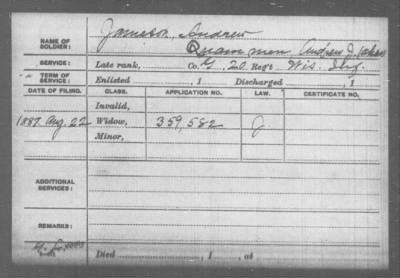 NAME OF SOLDIER: Jamison, Andrew
Quammen, Andrew J. (alias)
SERVICE: Late rank, Co. G, 20 Reg't Wis. Inf.
TERM OF SERVICE: Enlisted , 1 Discharged , 1
DATE OF FILING. CLASS. APPLICATION NO. LAW. CERTIFICATE NO.
Invalid,
1887 Aug. 22 Widow, 359,582 J.
Minor,
ADDITIONAL SERVICES:
REMARKS:
Died , 1 , at